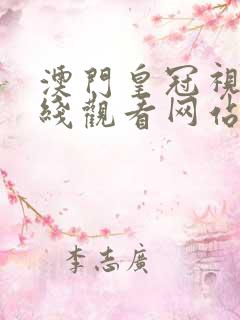 澳門皇冠視
綫觀看网佔
李志廣